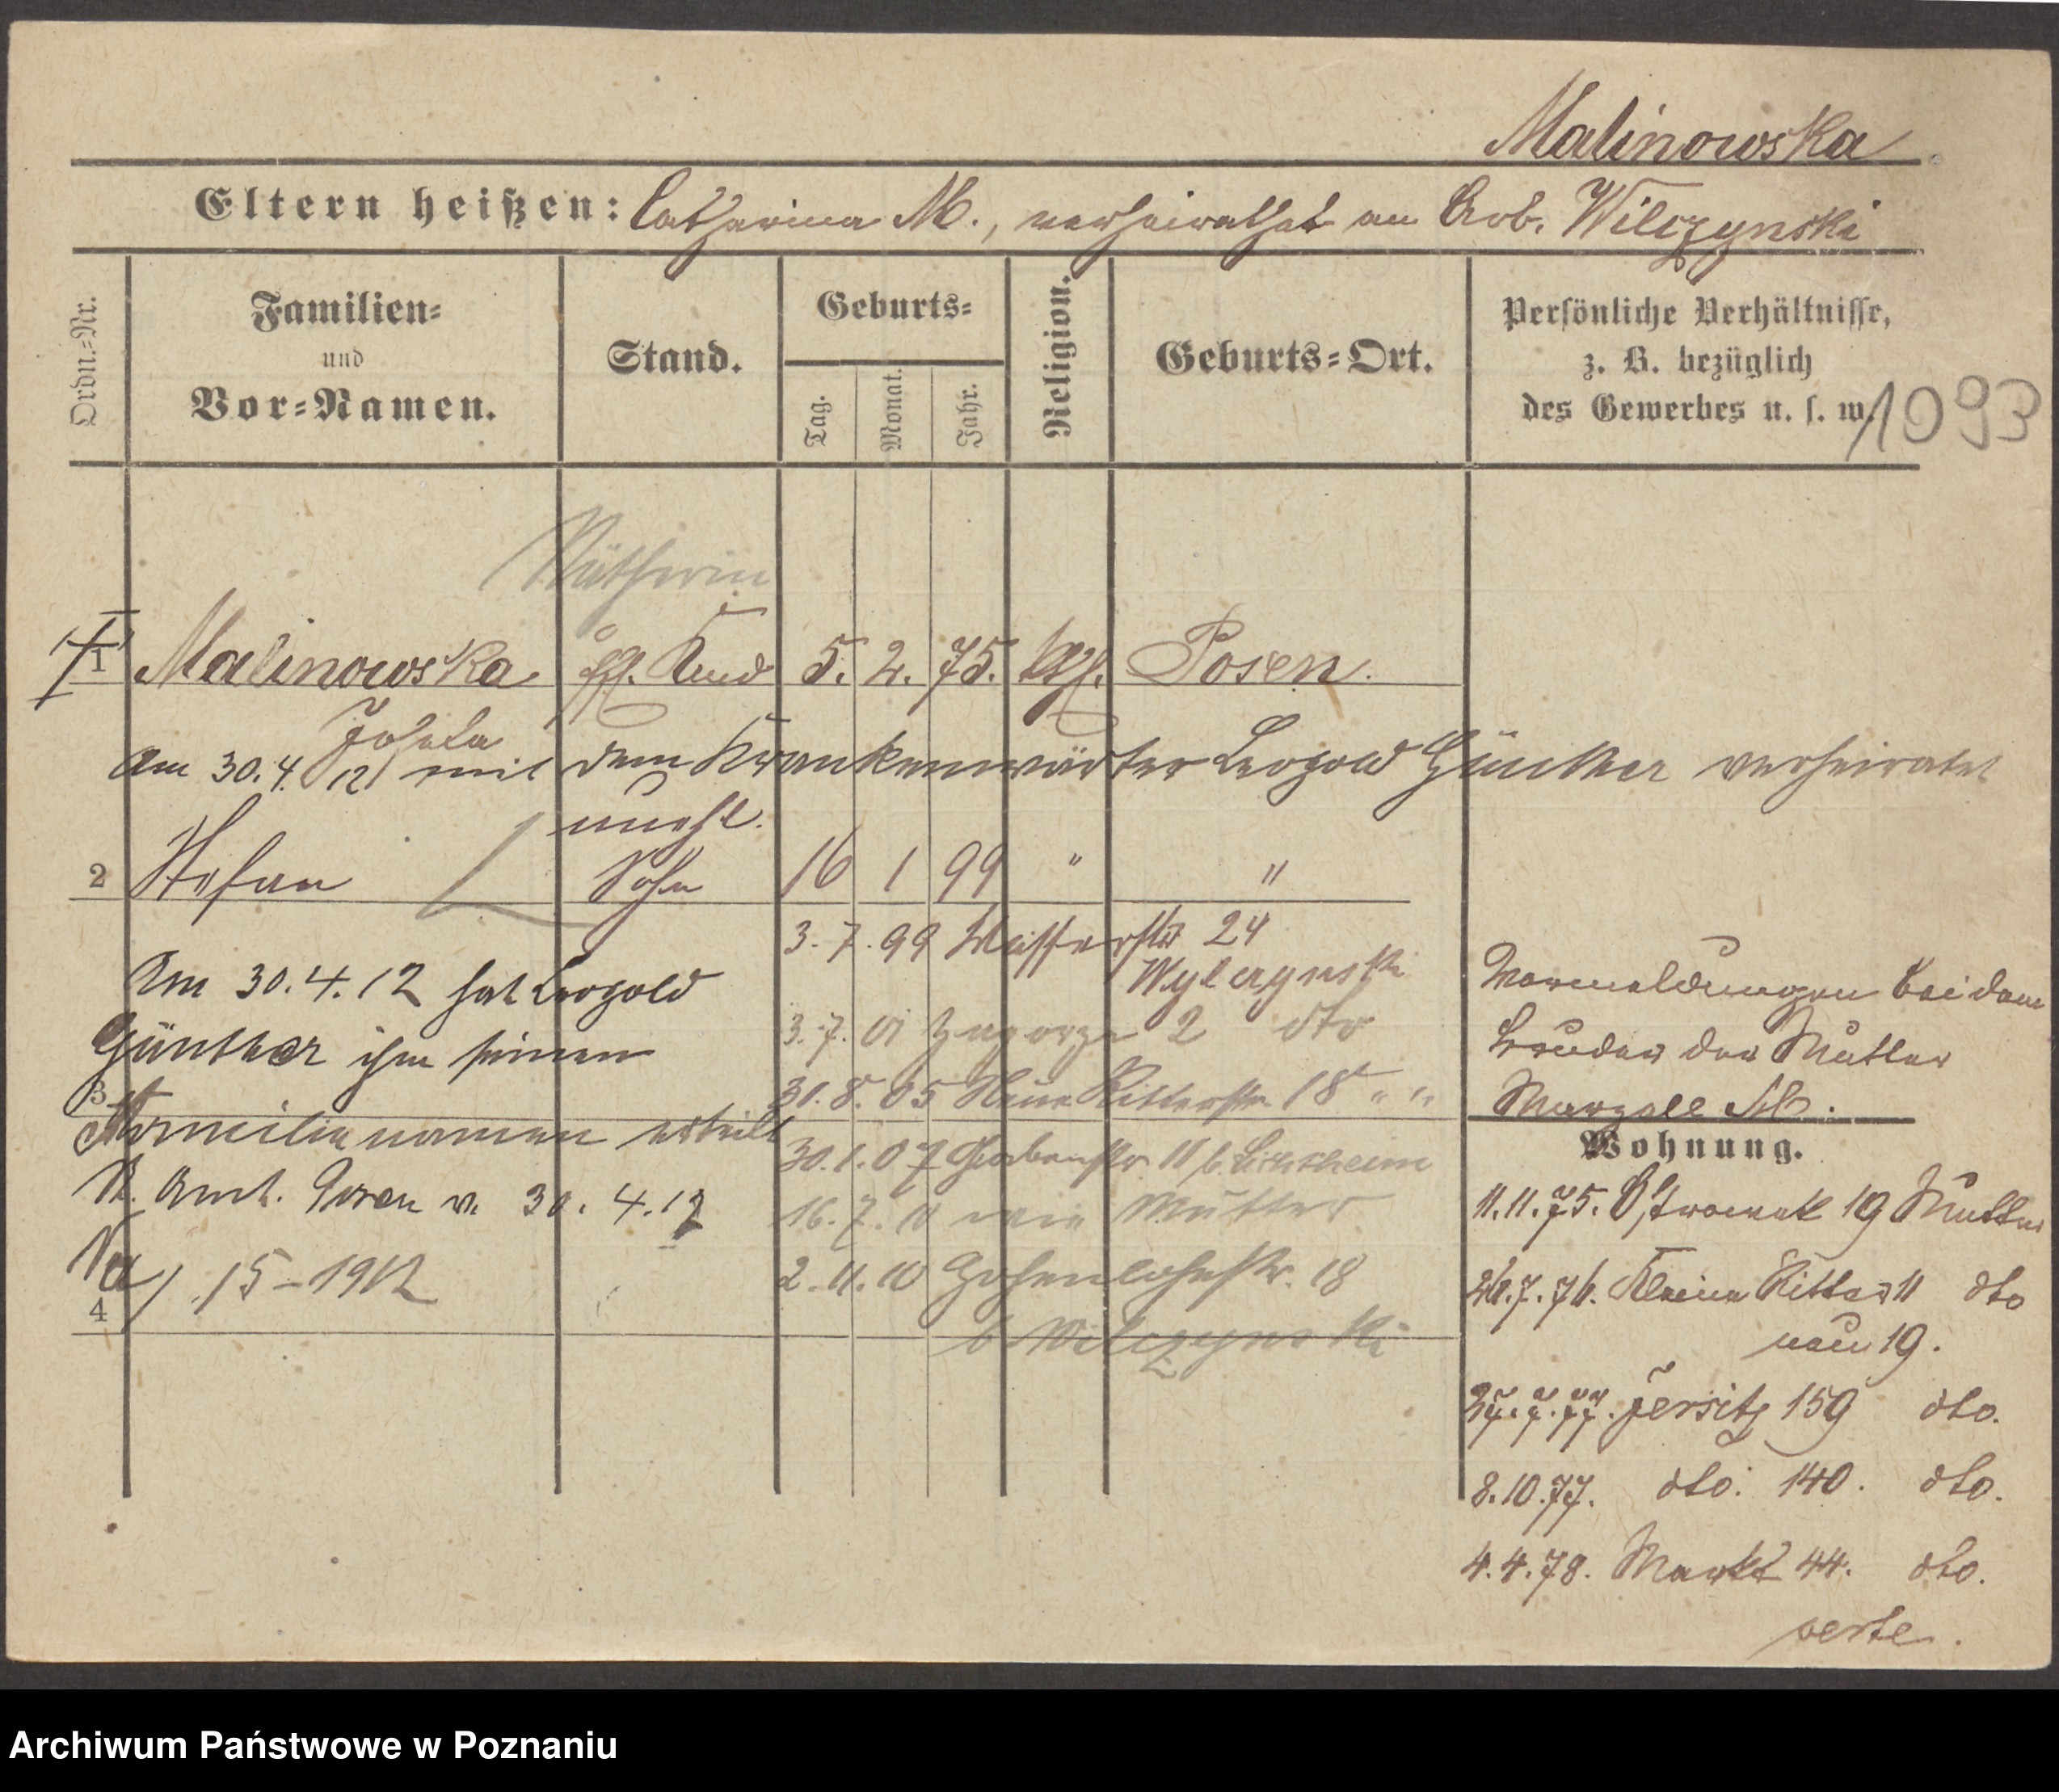 Malinowska
Eltern heißen: Catharina M., verheirathet an Arb. Wilczynski
Ordn.=Nr.
Familien=
und
Vor=Namen.
Stand.
Geburts=
Tag.
Monat.
Jahr.
Religion.
Geburts=Ort.
Persönliche Verhältnisse,
z. B. bezüglich
des Gewerbes u. s. w.
1093
Nätherin
1 Malinowska Kind 5. 2. 75. kth. Posen.
Josefa
am 30.4.12 mit dem Krankenwärter Leopold Günther verheiratet
unehl.
2 Stefan Sohn 16 1 99 " "
3.7.99 Wasserstr 24
Wylczynski
Am 30.4.12 hat Leopold
Günther ihm seinen
3
Familiennamen erteilt
St. Amt. Posen v. 30.4.12
15-1912
4
3.7.01 Zagorze 2 dto
31.8.05 Neue Ritterstr. 18 " "
30.1.07 Grabenstr 11 b.
16.7.10 wie Mutter
2.11.10 Hohenlohestr. 18
b Wilczynski
Vormeldungen bei dem
Bruder der Mutter
M.
Wohnung.
11.11.75. Ostrowek 19 Mutter
26.7.76. Kleine Ritter 11 dto
neu 19.
27.7.77. Jersitz 159 dto.
8.10.77. dto. 140. dto.
4.4.78. Markt 44. dto.
verte.
Archiwum Państwowe w Poznaniu